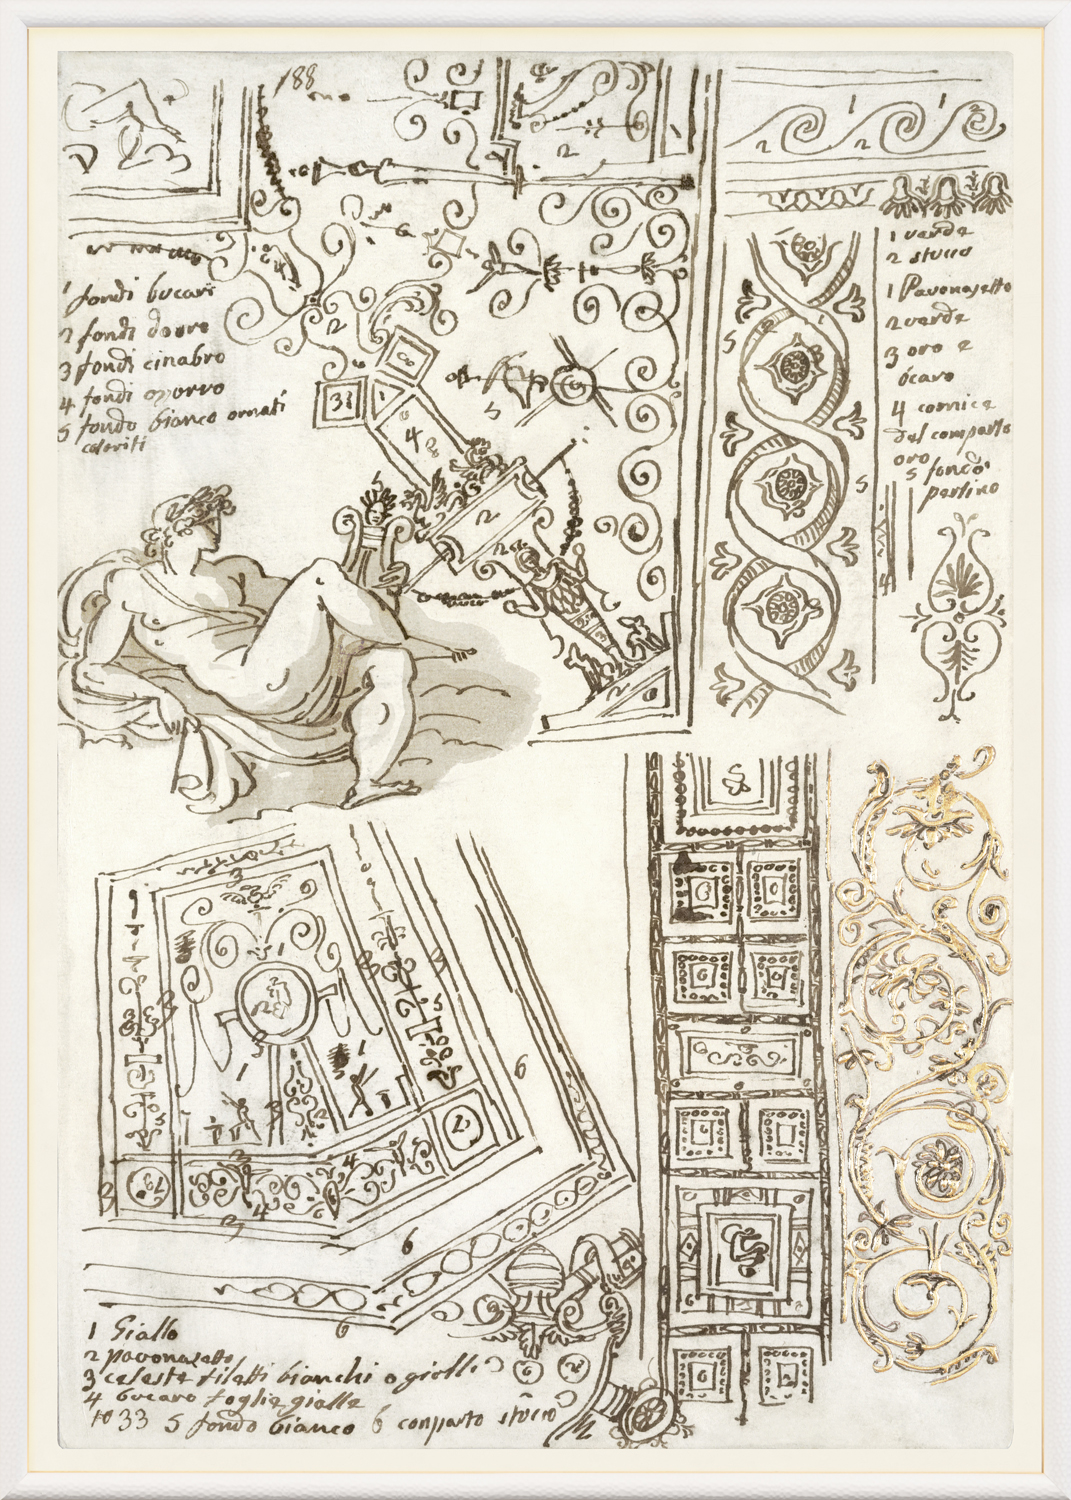 188
1 fondi bucari
2 fondi d'oro
3 fondi cinabro
4 fondi
5 fondo bianco ornati
coloriti
1 verde
2 stucco
1 Pavonazetto
2 verde
3 oro e
ocaro
4 cornice
del comparto
oro
5 fondo
1 Giallo
2 pavonazetto
3 celeste filetti bianchi o gialli
4 bucaro foglie gialle
to 33 5 fondo bianco 6 conparto stucco